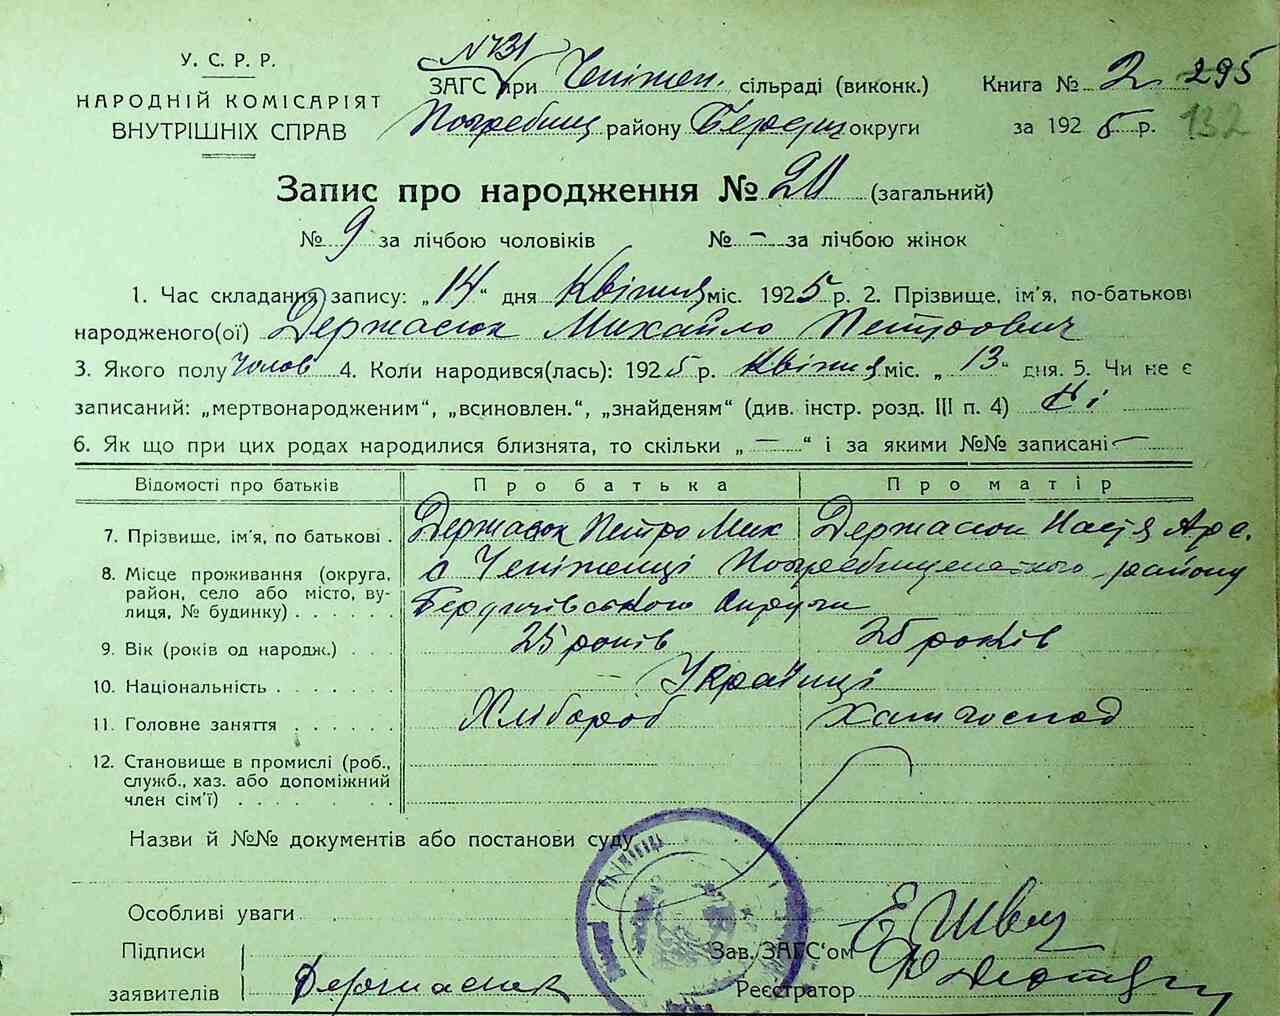 У. С. Р. Р.
НАРОДНІЙ КОМІСАРІЯТ
ВНУТРІШНІХ СПРАВ
№731
ЗАГС при Чепіжен. сільраді (виконк.) Книга № 2 295
Погребищ району Бердич округи за 1925 р. 132
Запис про народження № 20 (загальний)
№ 9 за лічбою чоловіків № – за лічбою жінок
1. Час складання запису: „14“ дня Квітня міс. 1925 р. 2. Прізвище, ім'я, по-батькові
народженого(ої) Держасюк Михайло Петрович
3. Якого полу Чолов 4. Коли народився(лась): 1925 р. Квітня міс. „13“ дня. 5. Чи не є
записаний: „мертвонародженим“, „всиновлен.“, „знайденям“ (див. інстр. розд. III п. 4) Ні
6. Як що при цих родах народилися близнята, то скільки „ — “ і за якими №№ записані —
Відомості про батьків Про батька Про матір
7. Прізвище, ім'я, по батькові . Держасюк Петро Мик Держасюк Настя Арс.
8. Місце проживання (округа, район, село або місто, вулиця, № будинку) с Чепіженці Погребищенського району
Бердичівського Округи
9. Вік (років од народж.) 25 років 25 років
10. Національність Українці
11. Головне заняття Хлібороб Хатн господ
12. Становище в промислі (роб.,
служб., хаз. або допоміжний
член сім'ї)
Назви й №№ документів або постанови суду
Особливі уваги
Підписи
заявителів Держасюк
Зав. ЗАГС'ом Е Швец
Реєстратор